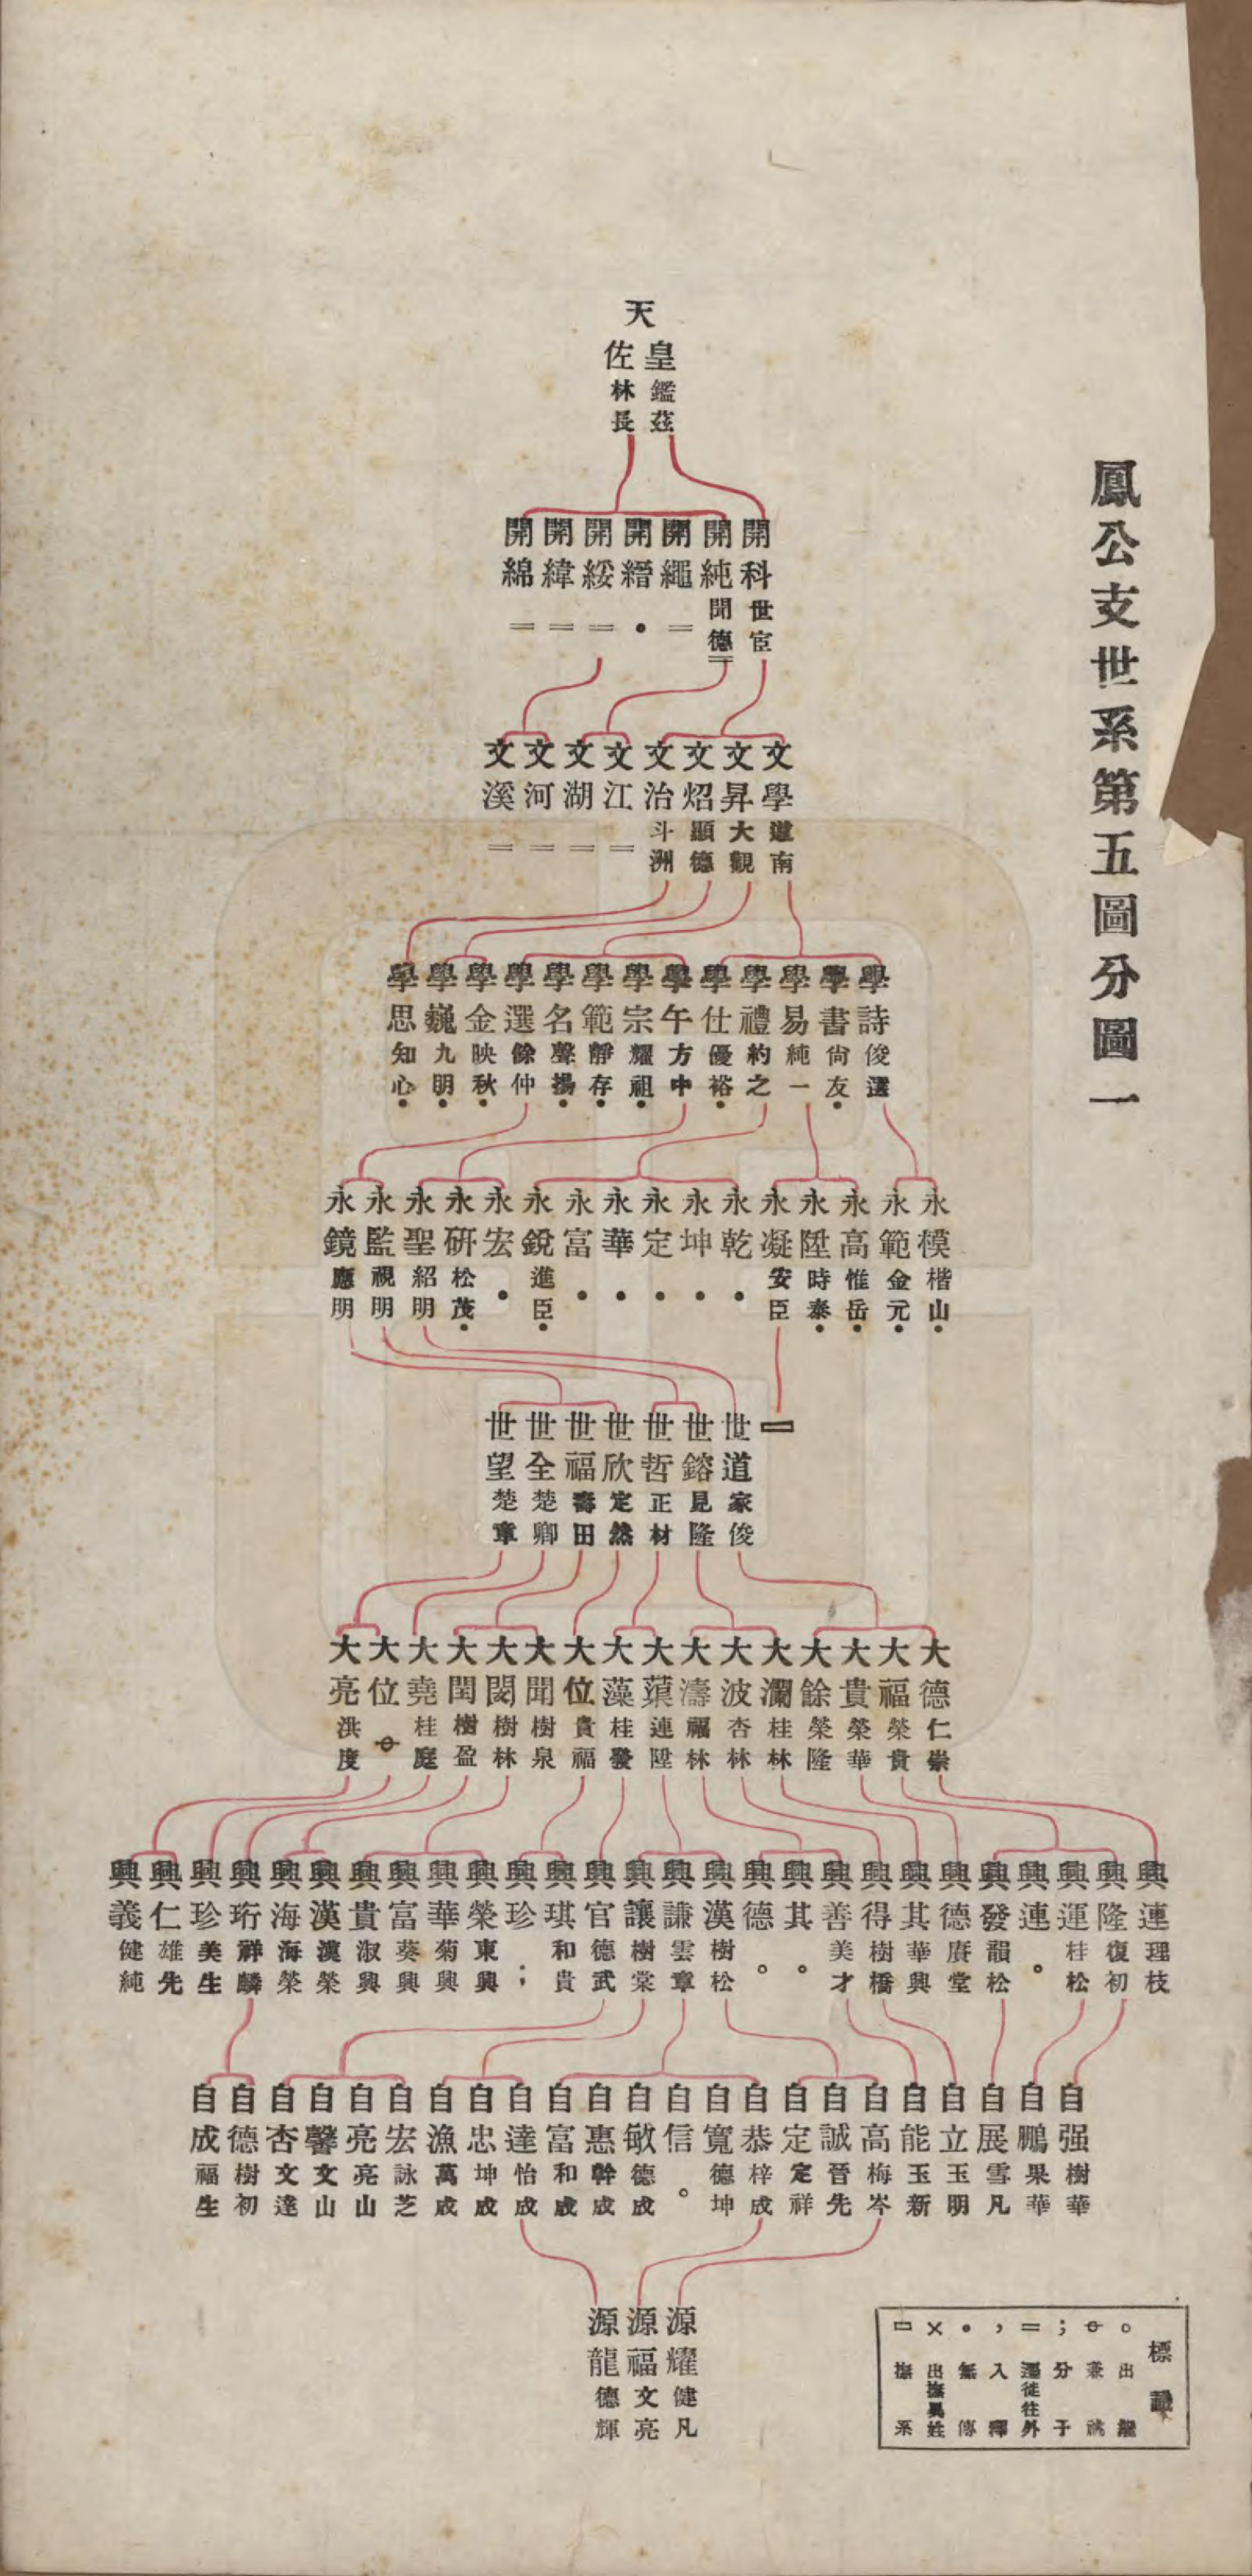 鳳公支世系第五圖分圖一
天
皇 鑑茲
佐 林長
開科 世宦
開純 聞德 =
開繩 =
開縉 •
開綏 =
開緯 =
開綿 =
文學 道南
文昇 大觀
文炤 顯德
文治 斗洲
文江 =
文湖 =
文河 =
文溪 =
學詩 俊選
學書 尙友 •
學易 純一
學禮 約之
學仕 優裕 •
學午 方中
學宗 耀祖 •
學範 靜存 •
學名 聲揚 •
學選 餘仲
學金 映秋 •
學巍 九明 •
學思 知心 •
永模 楷山 •
永範 金元 •
永高 惟岳 •
永陞 時泰 •
永凝 安臣
永乾 •
永坤 •
永定 •
永華 •
永富 •
永銳 進臣 •
永宏 •
永硏 松茂 •
永聖 紹明
永監 視明
永鏡 應明
世道 家俊
世鎔 見隆
世哲 正材
世欣 定然
世福 壽田
世全 楚卿
世望 楚章
大德 仁崇
大福 榮貴
大貴 榮華
大餘 榮隆
大瀾 桂林
大波 杏林
大濤 福林
大蕖 連陞
大藻 桂發
大位 貴福
大聞 樹泉
大閔 樹林
大閏 樹盈
大堯 桂庭
大位
大亮 洪度
興連 理枝
興隆 復初
興運 桂松
興連 。
興發 韻松
興德 賡堂
興其 華興
興得 樹橋
興善 美才
興其 。
興德 。
興漢 樹松
興謙 雲章
興讓 樹棠
興官 德武
興琪 和貴
興珍 ;
興榮 東興
興華 菊興
興富 葵興
興貴 淑興
興漢 漢榮
興海 海榮
興珩 祥麟
興珍 美生
興仁 雄先
興義 健純
自强 樹華
自鵬 果華
自展 雪凡
自立 玉明
自能 玉新
自高 梅岑
自誠 晉先
自定 定祥
自恭 梓成
自寬 德坤
自信 。
自敏 德成
自惠 幹成
自富 和成
自達 怡成
自忠 坤成
自漁 萬成
自宏 詠芝
自亮 亮山
自馨 文山
自杏 文達
自德 樹初
自成 福生
源耀 健凡
源福 文亮
源龍 德輝
標識
。 出繼
兼祧
; 分子
= 遷徙往外
, 入釋
• 無傳
× 出撫異姓
撫系